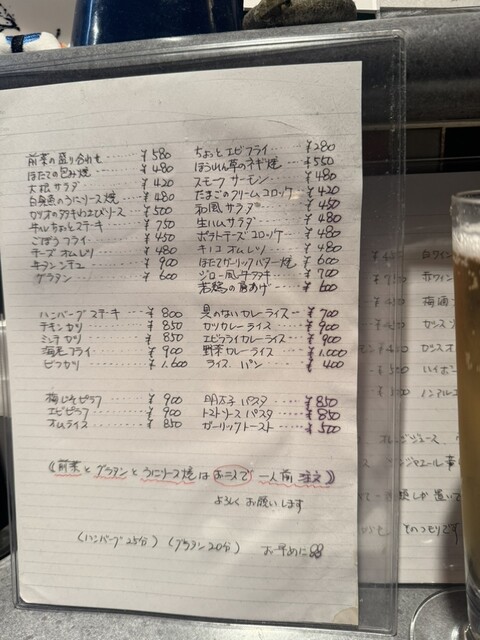 前菜の盛り合わせ ¥580
ほたての包み焼 ¥480
大根サラダ ¥420
白身魚のうにソース焼 ¥480
カツオのタタキわさびソース ¥500
牛ルちょっとステーキ ¥750
ごぼうフライ ¥450
チーズオムレツ ¥480
牛タンシチュー ¥900
グラタン ¥600
ちょっとエビフライ ¥280
ほうれん草のネギ焼 ¥550
スモークサーモン ¥480
たまごのクリームコロッケ ¥420
和風サラダ ¥450
生ハムサラダ ¥480
ポテトチーズコロッケ ¥480
キノコオムレツ ¥480
ほたてガーリックバター焼 ¥600
ジロー風チヂラキ ¥700
若鶏の唐あげ ¥600
ハンバーグステーキ ¥800
チキンカツ ¥850
ミンチカツ ¥850
海老フライ ¥900
ビフカツ ¥1.600
具のないカレーライス ¥700
カツカレーライス ¥900
エビフライカレーライス ¥900
野菜カレーライス ¥1.000
ライス パン ¥400
梅じそピラフ ¥900
エビピラフ ¥900
オムライス ¥850
明太子パスタ ¥850
トマトソースパスタ ¥850
ガーリックトースト ¥500
《前菜とグラタンとうにソース焼はお二人で一人前注文》
よろしくお願いします
(ハンバーグ25分) (グラタン20分) お早めに